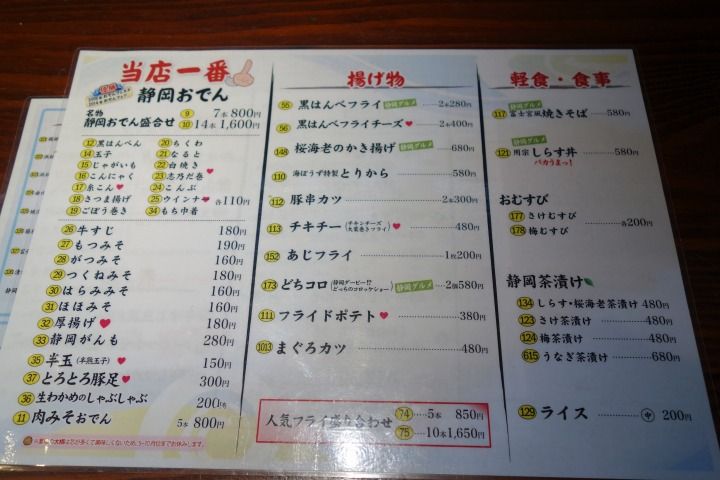 当店一番
静岡おでん
名物
静岡おでん盛合せ
9 7本 800円
10 14本 1,600円
12 黒はんぺん
14 玉子
15 じゃがいも
16 こんにゃく
17 糸こん♥
18 さつま揚げ
19 ごぼう巻き
20 ちくわ
21 なると
22 白焼き
23 志乃だ巻♥
24 こんぶ
25 ウインナー♥ 各110円
34 もち巾着
26 牛すじ 180円
27 もつみそ 190円
28 がつみそ 160円
29 つくねみそ 180円
30 はらみみそ 160円
31 ほほみそ 160円
32 厚揚げ♥ 180円
33 静岡がんも 280円
35 半玉(半熟玉子)♥ 150円
37 とろとろ豚足♥ 300円
36 生わかめのしゃぶしゃぶ 200円
11 肉みそおでん 5本 800円
揚げ物
55 黒はんぺフライ 静岡グルメ 2本280円
56 黒はんぺフライチーズ♥ 2本400円
148 桜海老のかき揚げ 静岡グルメ 680円
110 海ぼうず特製 とりから 580円
112 豚串カツ 2本300円
113 チキチー(チキンチーズ大葉巻きフライ)♥ 480円
152 あじフライ 1枚200円
173 どちコロ(静岡ダービー!?どっちのコロッケショー) 静岡グルメ 2個580円
111 フライドポテト♥ 380円
1013 まぐろカツ 480円
人気フライ盛り合わせ
74 5本 850円
75 10本1,650円
軽食・食事
静岡グルメ
117 富士宮風焼きそば 580円
静岡グルメ
121 用宗しらす丼 580円
バカうまっ!
おむすび
177 さけむすび
178 梅むすび
各200円
静岡茶漬け
134 しらす・桜海老茶漬け 480円
123 さけ茶漬け 480円
124 梅茶漬け 480円
615 うなぎ茶漬け 680円
129 ライス 中 200円